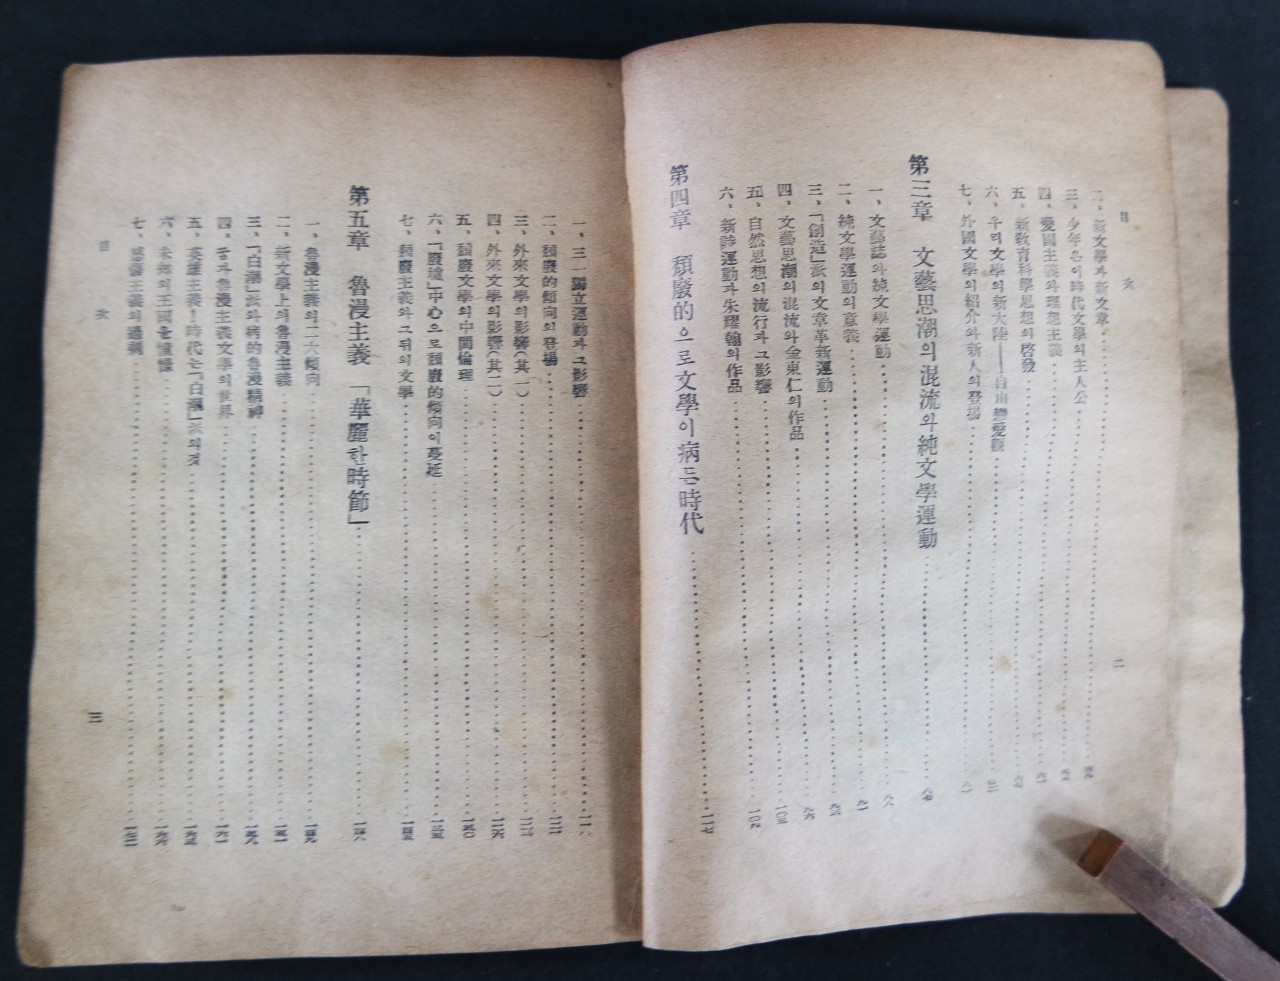 目次
二
二、新文學과新文章
三、少年은이時代文學의主人公
四、愛國主義와理想主義
五、新敎育科學思想의啓發
六、우리文學의新大陸——自由戀愛觀
七、外國文學의紹介와新人의登場
第三章 文藝思潮의混流와純文學運動
一、文藝誌와純文學運動
二、純文學運動의意義
三、「創造」派의文章革新運動
四、文藝思潮의混流와金東仁의作品
五、自然思想의流行과그影響
六、新詩運動과朱耀翰의作品
第四章 頹廢的으로文學이病든時代
一、三一獨立運動과그影響
二、頹廢的傾向의登場
三、外來文學의影響(其一)
四、外來文學의影響(其二)
五、頹廢文學의中間倫理
六、「廢墟」中心으로頹廢的傾向이蔓延
七、頹廢主義와그뒤의文學
第五章 魯漫主義 「華麗한時節」
一、魯漫主義의二大傾向
二、新文學上의魯漫主義
三、「白潮」派와病的魯漫精神
四、꿈과魯漫主義文學의世界
五、英雄主義!時代는「白潮」派의것
六、未知의王國을憧憬
七、感傷主義의過剩
目次
三